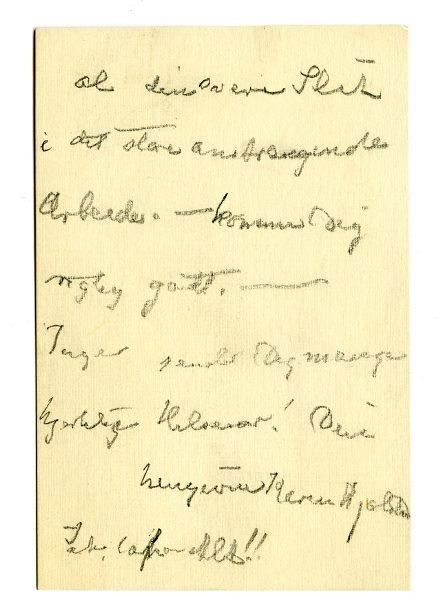 al din
i det store anstrængende
Arbeide. — kommer Dig
rigtig godt. —
Inger sender Dig mange
hjertelig Hilsener! Din
hengivne Karen
Tak, for Alt!!